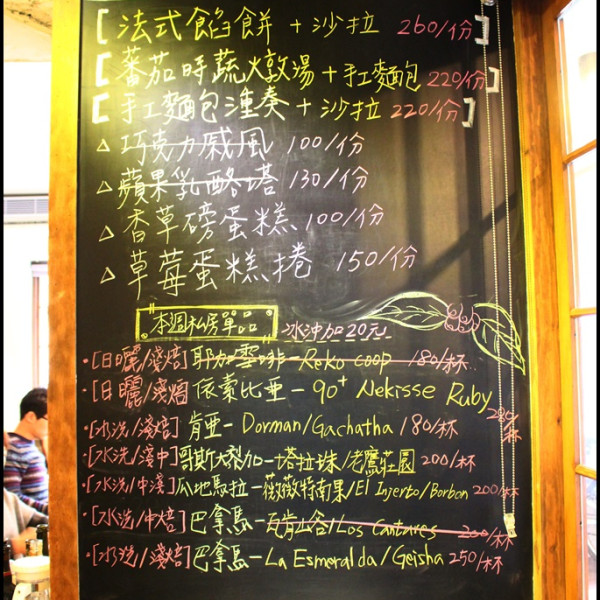 [法式餡餅+沙拉 260/份]
[蕃茄時蔬燉湯+手工麵包 220/份]
[手工麵包湩奏+沙拉 220/份]
△ 巧克力戚風 100/份
△ 蘋果乳酪塔 130/份
△ 香草磅蛋糕 100/份
△ 草莓蛋糕捲 150/份
本週私房單品 冰沖加20元
·[日曬/淺焙] 耶加雪啡-Reko coop 180/杯
·[日曬/淺焙] 依索比亞-90+ Nekisse Ruby
·[水洗/淺焙] 肯亞-Dorman/Gachatha 180/杯
·[水洗/淺中] 哥斯大黎加-塔拉珠/老鷹莊園 200/杯
·[水洗/中淺] 瓜地馬拉-薇薇特南果/El Injerto/Borbon 200/杯
·[水洗/中焙] 巴拿馬-瓦肯山谷/Los Cantares 200/杯
·[水洗/淺焙] 巴拿馬-La Esmeralda/Geisha 250/杯